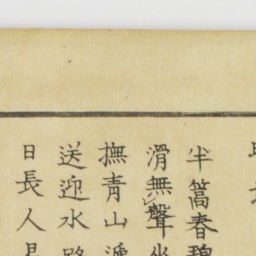 半篙春碧
滑無聲坐
撫青山遞
送迎水路
日長人